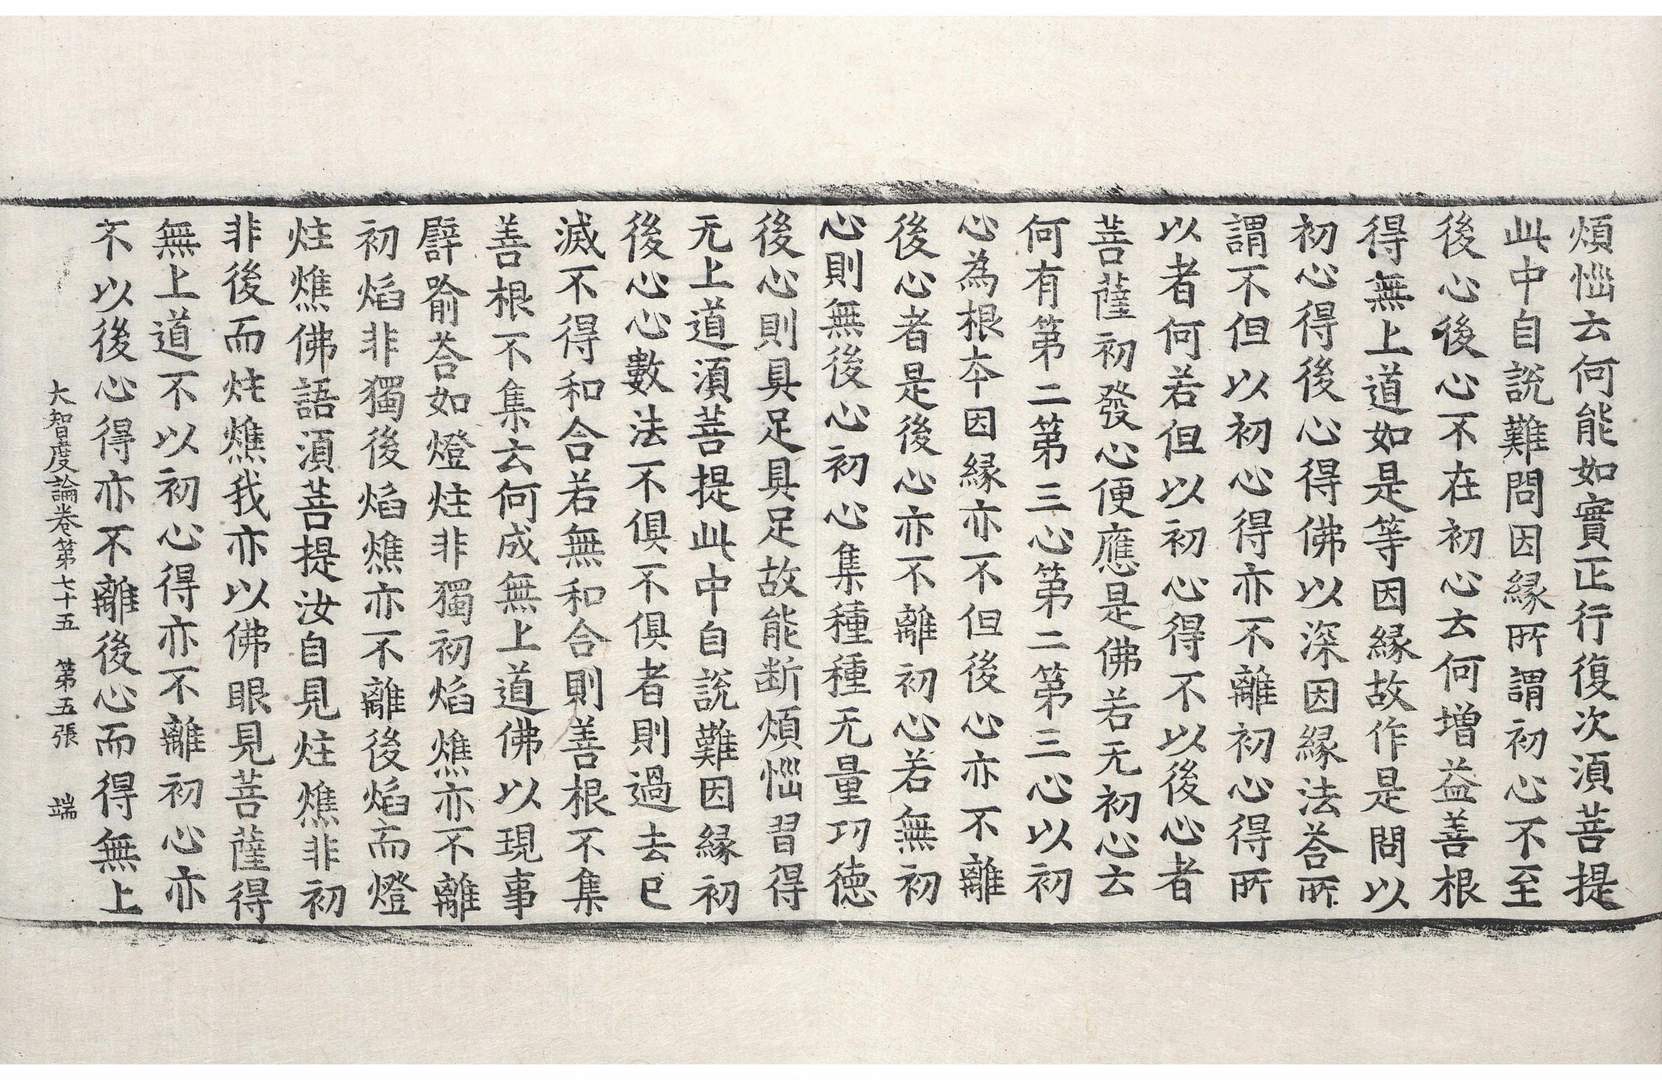 煩惱云何能如實正行復次湏菩提
此中自說難問因緣所謂初心不至
後心後心不在初心云何增益善根
得無上道如是等因緣故作是問以
初心得後心得佛以深因緣法荅所
謂不但以初心得亦不離初心得所
以者何若但以初心得不以後心者
菩薩初發心便應是佛若无初心云
何有第二第三心第二第三心以初
心為根本因緣亦不但後心亦不離
後心者是後心亦不離初心若無初
心則無後心初心集種種无量功德
後心則具足具足故能断煩惱習得
无上道湏菩提此中自說難因緣初
後心心數法不俱不俱者則過去已
滅不得和合若無和合則善根不集
善根不集云何成無上道佛以現事
譬喻荅如燈炷非獨初焰燋亦不離
初焰非獨後焰燋亦不離後焰而燈
炷燋佛語湏菩提汝自見炷燋非初
非後而炷燋我亦以佛眼見菩薩得
無上道不以初心得亦不離初心亦
不以後心得亦不離後心而得無上
大智度論卷第七十五 第五張 端